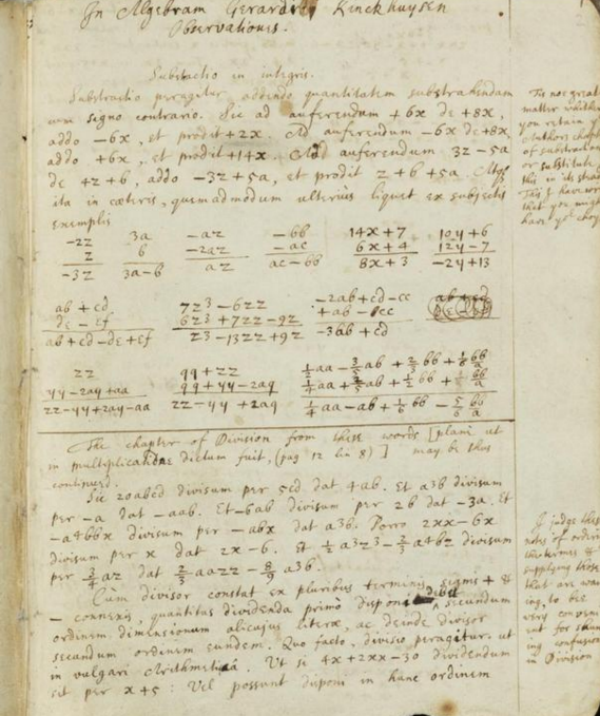 In Algebram Gerardi Kinckhuysen
Observationes.
Substractio in integris.
Substractio peragitur addendo quantitatem substrahendam
cum signo contrario. Sic ad auferendum +6x de +8x,
addo -6x, et prodit +2x. Ad auferendum -6x de +8x
addo +6x, et prodit +14x. Ad auferendum 3z-5a
de +z+6, addo -3z+5a, et prodit z+6+5a. Atq
ita in cæteris, quemadmodum ulterius liquet ex subjectis
exemplis
-2z 3a -az -bb 14x+7 10y+6
z b -2az -ac 6x+4 12y-7
-3z 3a-b az ac-bb 8x+3 -2y+13
ab+cd 7z3-6zz -2ab+cd-cc ab+cd
de-ef 6z3+7zz-9z +ab-cc
ab+cd-de+ef z3-13zz+9z -3ab+cd
zz qq+zz 1/4aa ab bb bb/a
yy-2ay+aa qq+yy-2aq aa ab+1/2bb bb/a
zz-yy+2ay-aa zz-yy+2aq 1/4aa-ab+1/6bb-5/6 bb/a
The chapter of Division from these words [plane ut
in multiplicatione dictum fuit, (pag 12 lin 8)] may be thus
continued.
Sic 20abcd divisum per 5cd dat 4ab. Et a3b divisum
per -a dat -aab. Et -6ab divisum per 2b dat -3a. Et
-a4bbx divisum per -abx dat a3b. Porro 2xx-6x
divisum per x dat 2x-6. Et 1/2 a3z3-2/3 a4bz divisum
per 3/4 az dat 2/3 aazz-8/9 a3b.
Cùm divisor constat ex pluribus terminis signis + &
- connexis, quantitas dividenda primo disponi debet secundum
ordinem dimensionum alicujus literæ, ac deinde divisor
secundum ordinem eundem. Quo facto, divisio peragitur ut
in vulgari Arithmetica. Ut si 4x+2xx-30 dividendum
sit per x+5: Vel possunt disponi in hunc ordinem
Tis not great
matter whether
you retain ye
Authors chapt
of substraction
or substitute
this in its stead
This I have wr
that you might
have ye choy
I judge this
notes of orderi
the termes &
supplying those
that are wan
ing, to be
very conveni
ent for shun
ing confusion
in Division